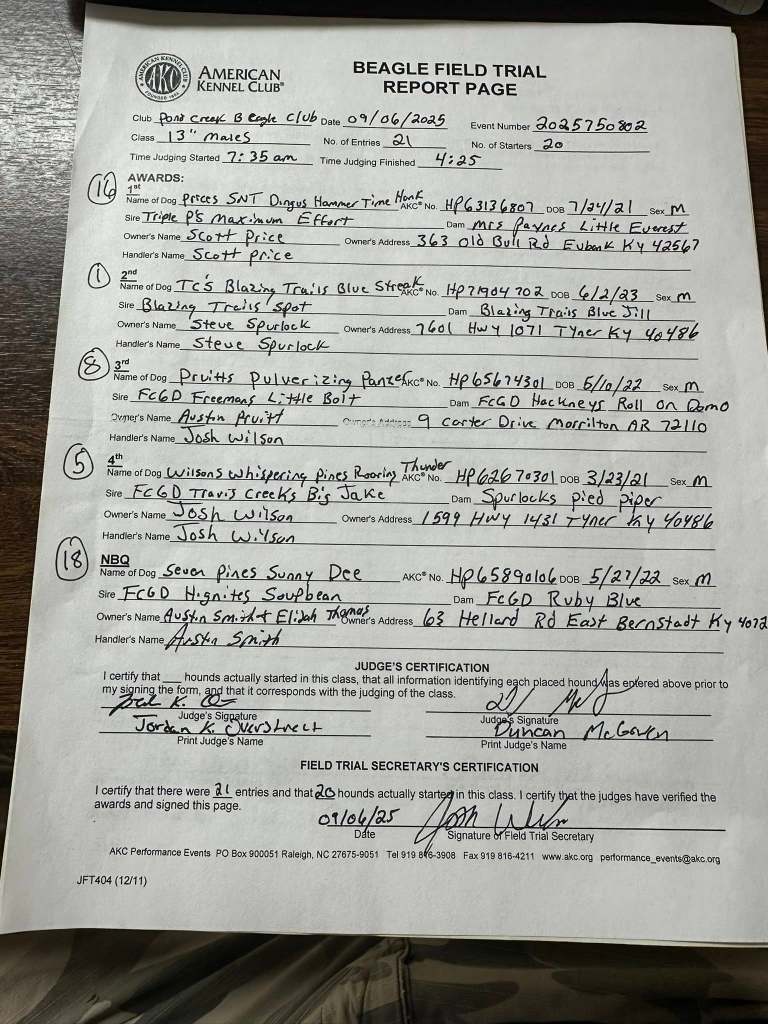 AMERICAN KENNEL CLUB
FOUNDED 1884
AKC
AMERICAN
KENNEL CLUB®
BEAGLE FIELD TRIAL
REPORT PAGE
Club Pond Creek Beagle Club Date 09/06/2025 Event Number 2025750802
Class 13" males No. of Entries 21 No. of Starters 20
Time Judging Started 7:35 am Time Judging Finished 4:25
AWARDS:
16
1st
Name of Dog Prices SNT Dingus Hammer Time Honk AKC® No. HP63136807 DOB 7/24/21 Sex M
Sire Triple P's Maximum Effort Dam Mrs Paynes Little Everest
Owner's Name Scott Price Owner's Address 363 Old Bull Rd Eubank Ky 42567
Handler's Name Scott Price
1
2nd
Name of Dog TC's Blazing Trails Blue Streak AKC® No. HP71904702 DOB 6/2/23 Sex M
Sire Blazing Trails Spot Dam Blazing Trails Blue Jill
Owner's Name Steve Spurlock Owner's Address 7601 Hwy 1071 Tyner Ky 40486
Handler's Name Steve Spurlock
8
3rd
Name of Dog Pruitts Pulverizing Panzer AKC® No. HP65674301 DOB 5/10/22 Sex M
Sire FCGD Freemans Little Bolt Dam FCGD Hackneys Roll on Demo
Owner's Name Austin Pruitt Owner's Address 9 Carter Drive Morrilton AR 72110
Handler's Name Josh Wilson
5
4th
Name of Dog Wilsons Whispering Pines Roaring Thunder AKC® No. HP62670301 DOB 3/23/21 Sex M
Sire FCGD Travis Creeks Big Jake Dam Spurlocks pied piper
Owner's Name Josh Wilson Owner's Address 1599 Hwy 1431 Tyner Ky 40486
Handler's Name Josh Wilson
18
NBQ
Name of Dog Seven Pines Sunny Dee AKC® No. HP65890106 DOB 5/27/22 Sex M
Sire FCGD Hignites Soupbean Dam FCGD Ruby Blue
Owner's Name Austin Smith + Elijah Thomas Owner's Address 63 Hellard Rd East Bernstadt Ky 4072
Handler's Name Austin Smith
JUDGE'S CERTIFICATION
I certify that ___ hounds actually started in this class, that all information identifying each placed hound was entered above prior to
my signing the form, and that it corresponds with the judging of the class.
Judge's Signature Judge's Signature
Jordan K. Overstreet Duncan McGowen
Print Judge's Name Print Judge's Name
FIELD TRIAL SECRETARY'S CERTIFICATION
I certify that there were 21 entries and that 20 hounds actually started in this class. I certify that the judges have verified the
awards and signed this page.
09/06/25 Josh Wilson
Date Signature of Field Trial Secretary
AKC Performance Events PO Box 900051 Raleigh, NC 27675-9051 Tel 919 816-3908 Fax 919 816-4211 www.akc.org performance_events@akc.org
JFT404 (12/11)